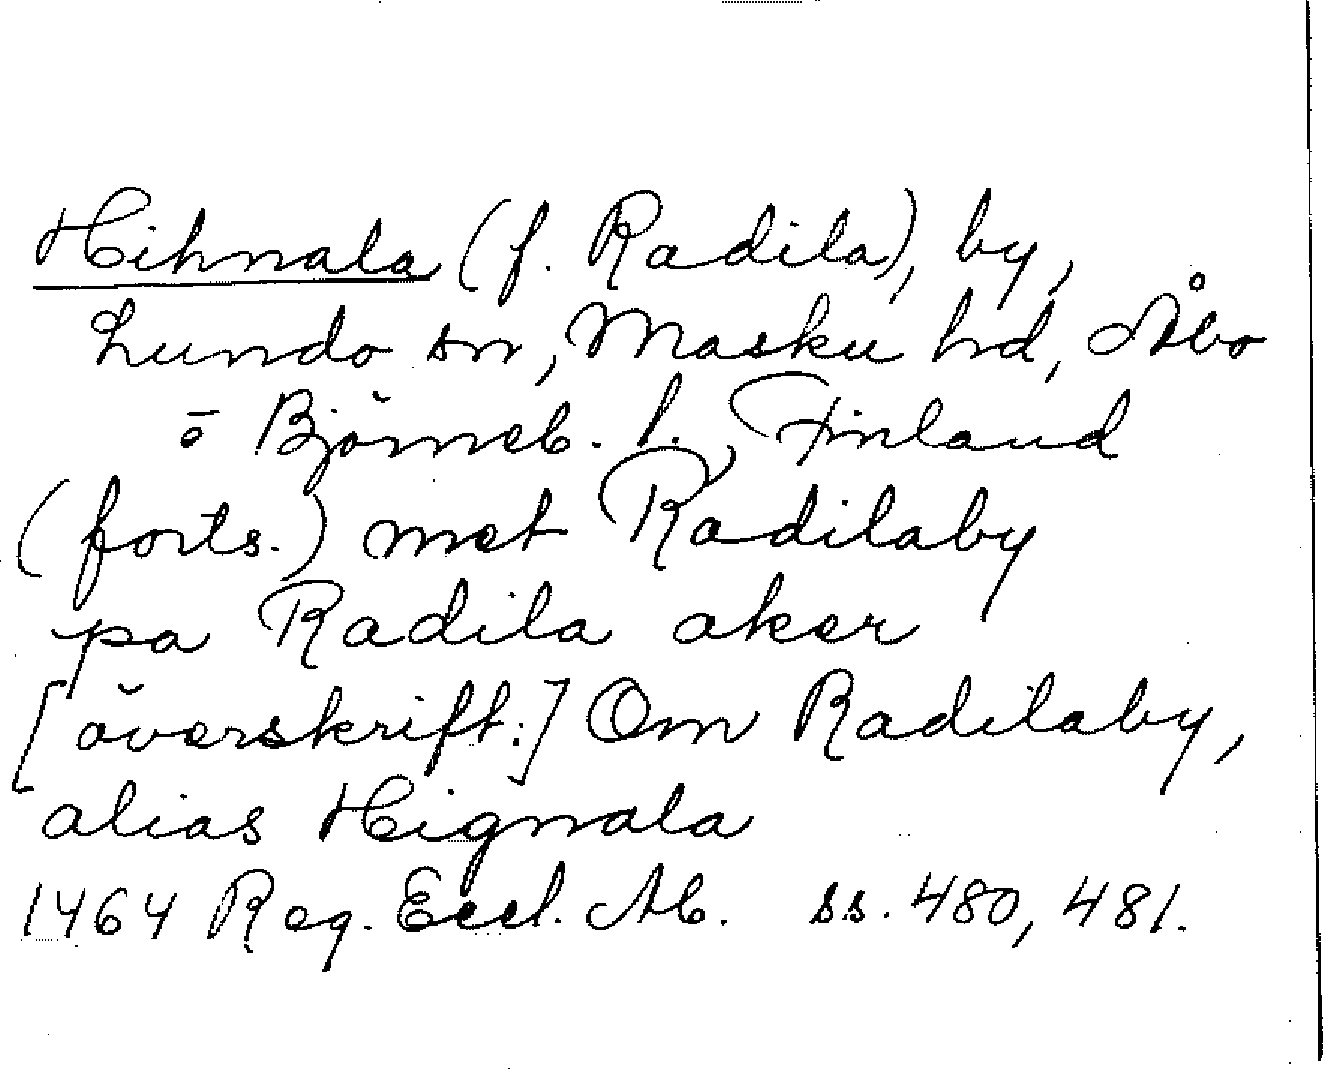 Hihnala (f. Radila), by,
Lundo sn, Masku hd, Åbo
o Björneb. l., Finland
(forts.) met Radilaby
pa Radila aker
[överskrift:] Om Radilaby,
alias Hignala
1464 Reg. Eccl. Ab. ss. 480, 481.